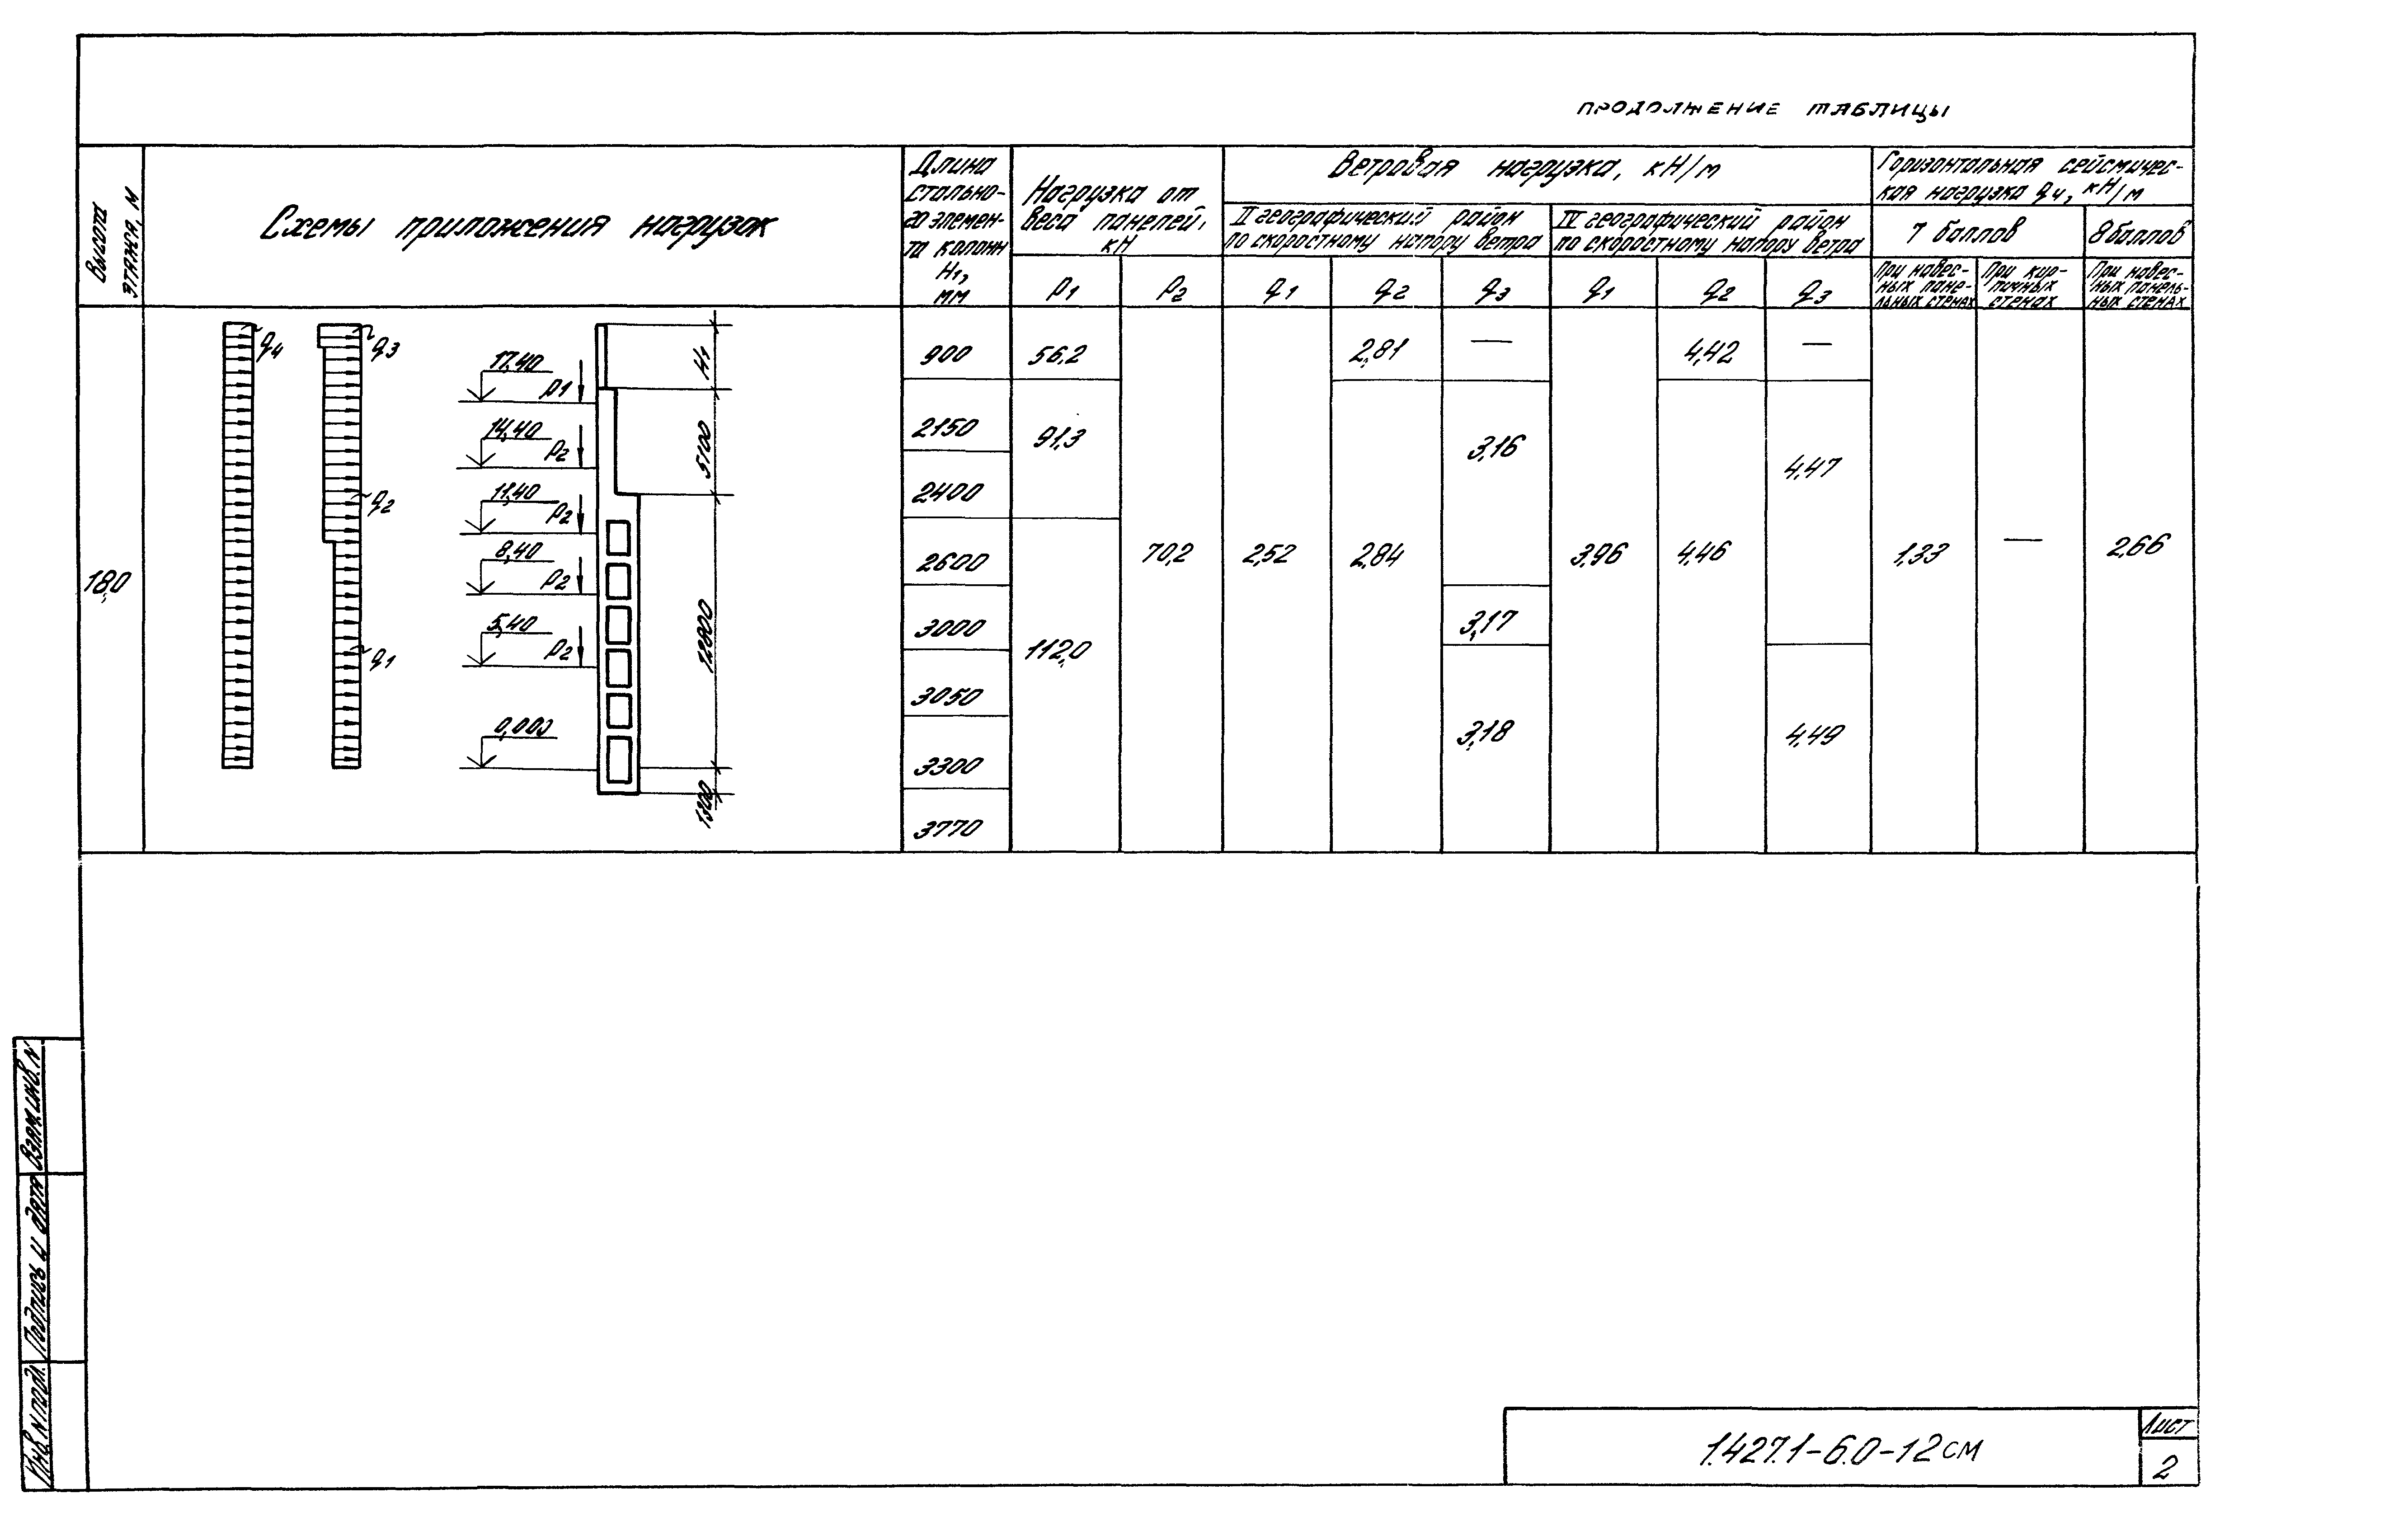 продолжение таблицы
Высота
этажа, м
Схемы приложения нагрузок
Длина
стально-
го элемен-
та колонн
H1,
мм
Нагрузка от
веса панелей,
кН
P1
P2
Ветровая нагрузка, кН/м
II географический район
по скоростному напору ветра
IV географический район
по скоростному напору ветра
q1
q2
q3
q1
q2
q3
Горизонтальная сейсмичес-
кая нагрузка q4, кН/м
7 баллов
8 баллов
При навес-
ных пане-
льных стенах
При кир-
пичных
стенах
При навес-
ных панель-
ных стенах
18,0
q4
q3
q2
q1
17,40
P1
14,40
P2
11,40
P2
8,40
P2
5,40
P2
0,000
H1
5100
12900
1300
900
56,2
2,81
—
4,42
—
2150
91,3
3,16
4,47
2400
2600
70,2
2,52
2,84
3,96
4,46
1,33
—
2,66
3000
112,0
3,17
3050
3,18
4,49
3300
3770
Взам.инв.N
Подпись и дата
Инв.N подл.
1.427.1-6.0-12СМ
Лист
2